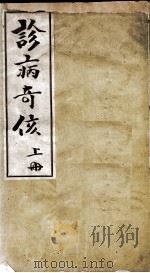 診病奇侅
上冊
mtoou.info